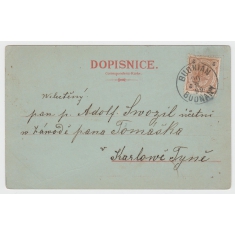 DOPISNICE.
BUDNIAN
BUDŇANY
Vělectěný
pan p. Adolf Swozil účetní
w závodě pana Tomáška
w
Karlowě Týně